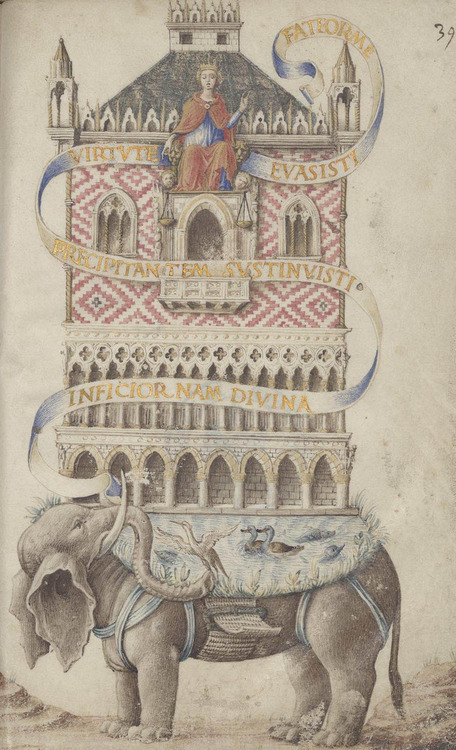 39
FATEORME
VIRTVTE EVASISTI
PRECIPITANTEM SVSTINVISTI
INFICIOR NAM DIVINA